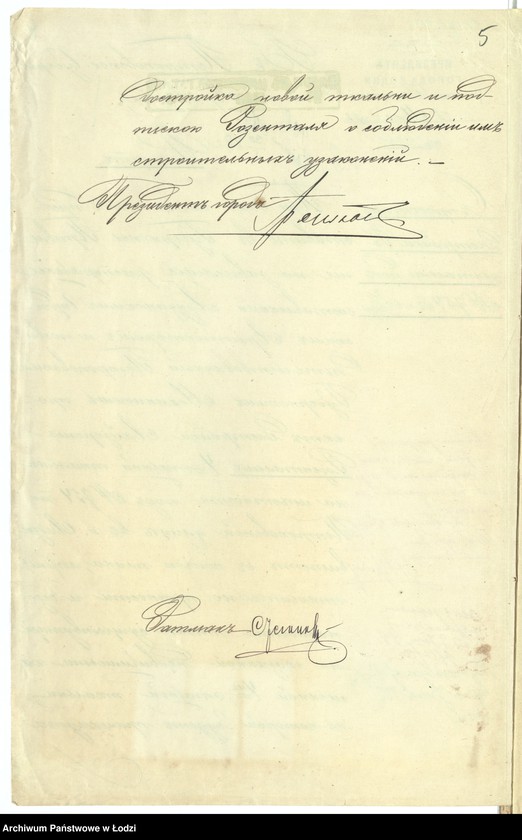 5
Постройка новой ткальни и под-
пискою Розенталя о соблюденіи имъ
строительныхъ узаконеній. —
Президентъ города
Ратманъ
Archiwum Państwowe w Łodzi